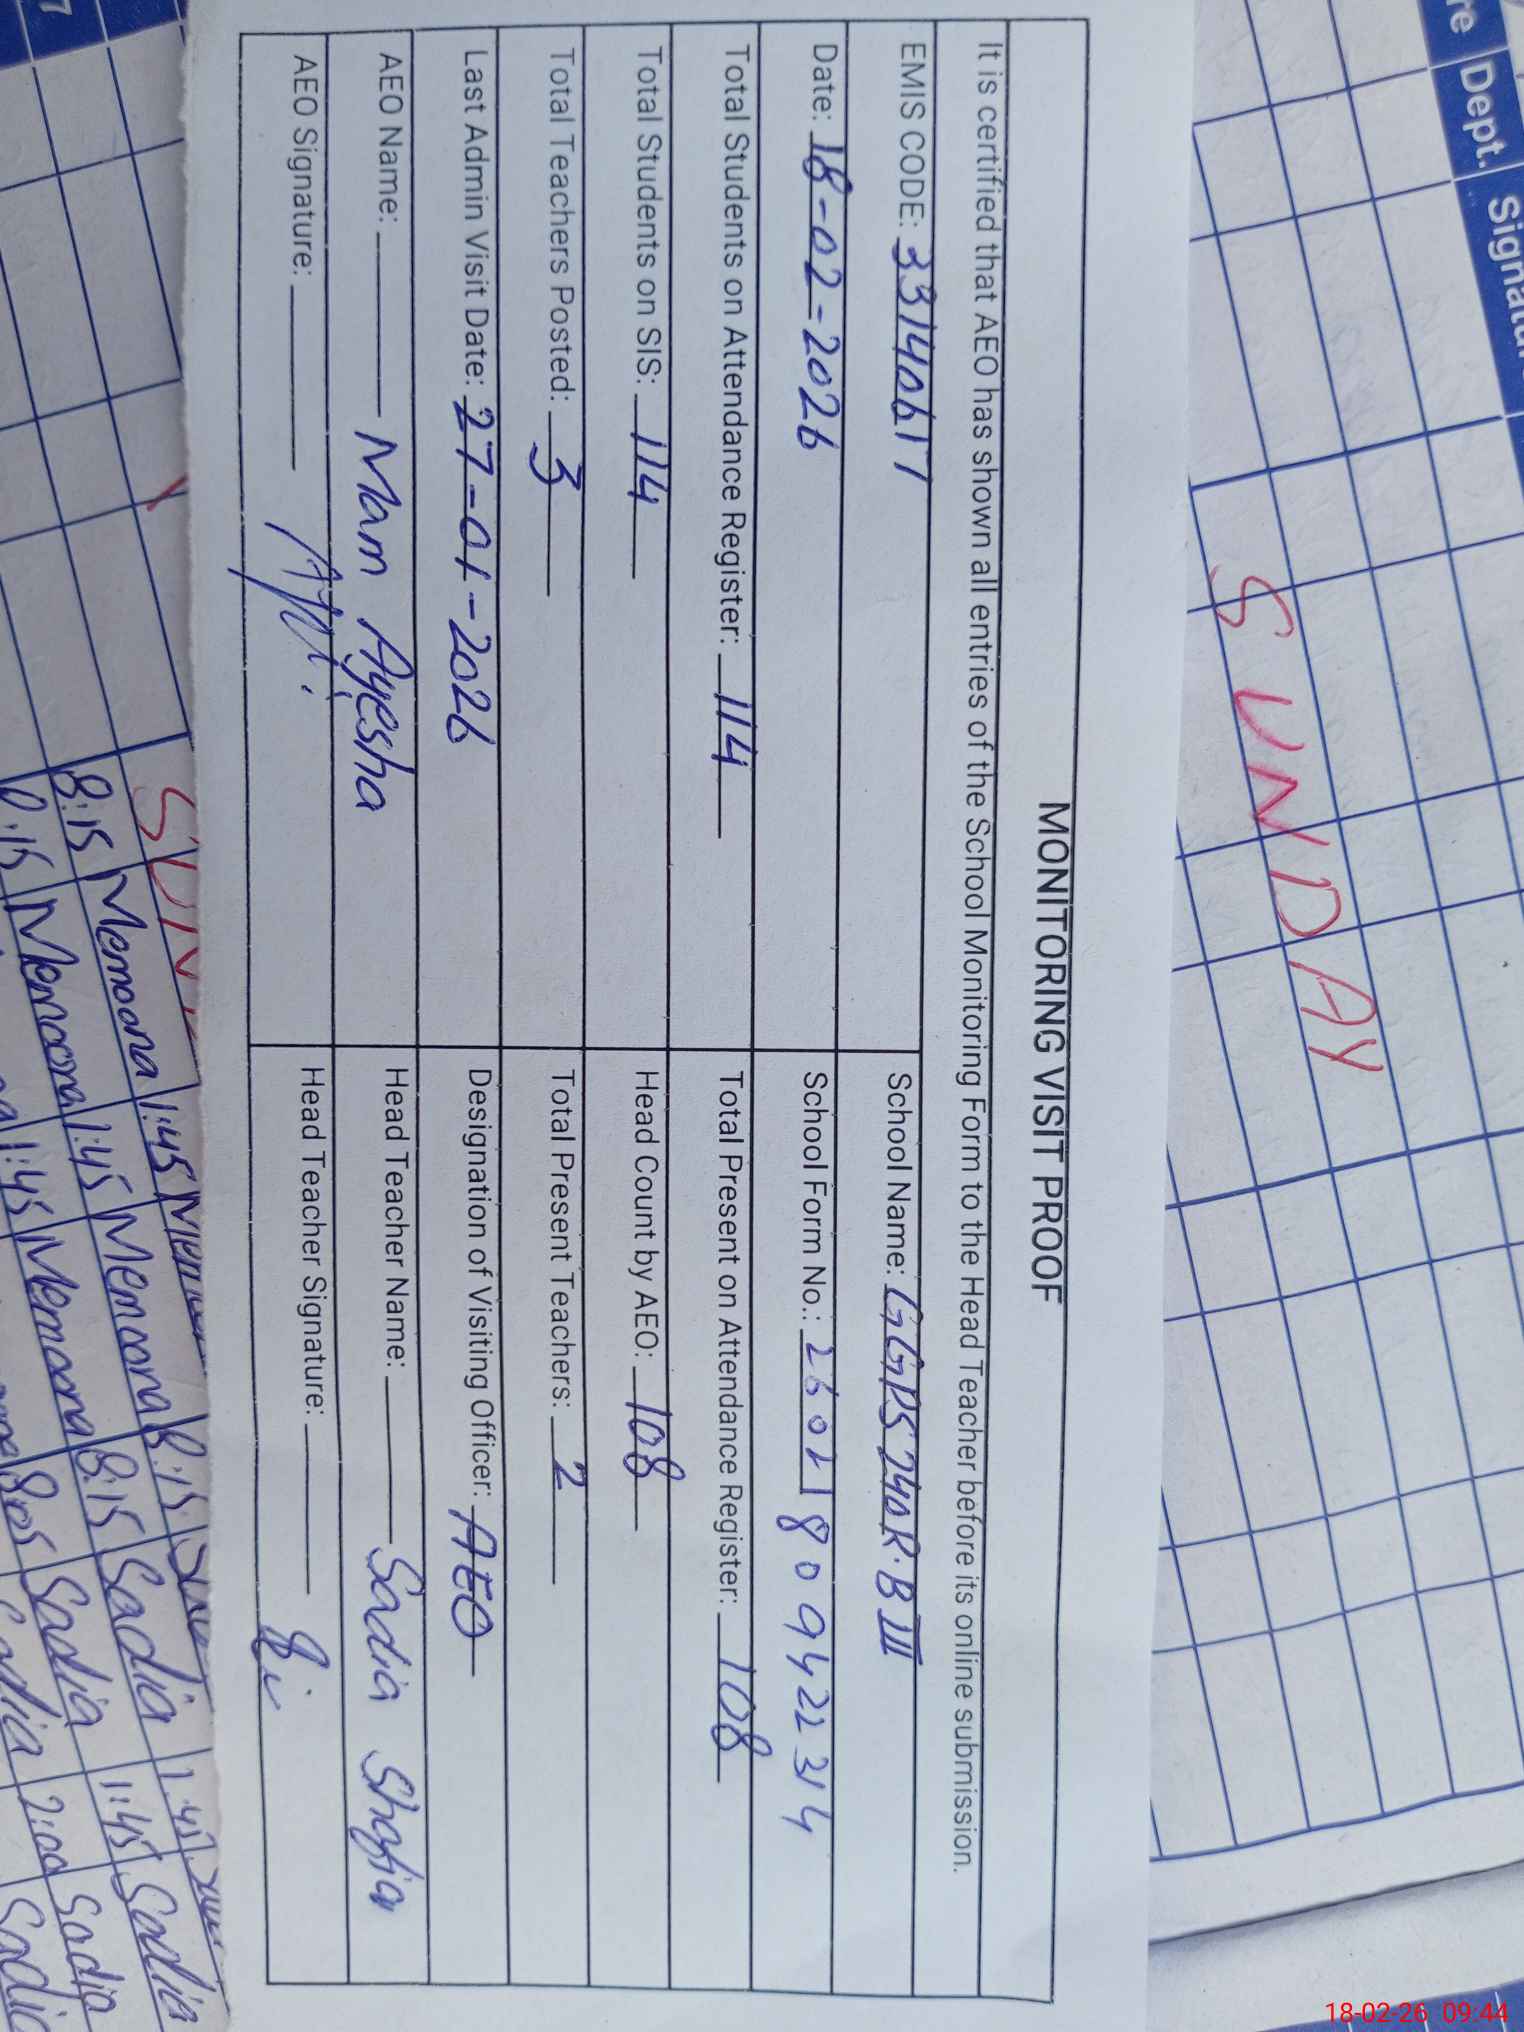 MONITORING VISIT PROOF
It is certified that AEO has shown all entries of the School Monitoring Form to the Head Teacher before its online submission.
EMIS CODE: 33140617 School Name: GGPS 240R.B III
Date: 18-02-2026 School Form No.: 2602180942234
Total Students on Attendance Register: 114 Total Present on Attendance Register: 108
Total Students on SIS: 114 Head Count by AEO: 108
Total Teachers Posted: 3 Total Present Teachers: 2
Last Admin Visit Date: 27-01-2026 Designation of Visiting Officer: AEO
AEO Name: Mam Ayesha Head Teacher Name: Sadia Shafia
AEO Signature: Head Teacher Signature:
re Dept. Signatu
SUNDAY
SUN
8:15 Memoona 1:45 Memoona 8:15 Sadia 1:45 Sadia
Memoona 1:45 Memoona 8:15 Sadia 1:45 Sadia
1:45 Memoona 8:05 Sadia 2:00 Sadia
18-02-26 09:44